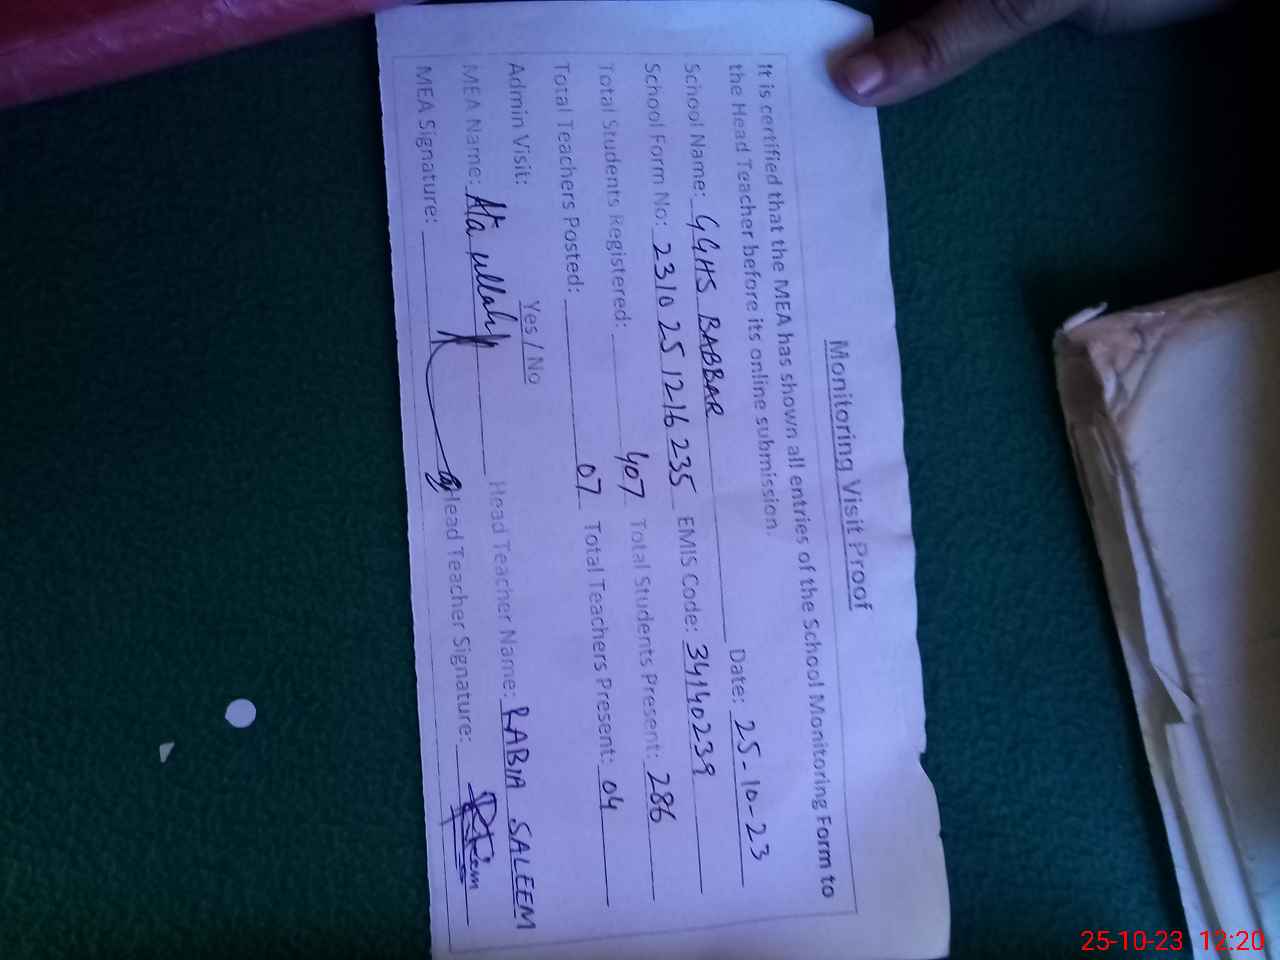 Monitoring Visit Proof
It is certified that the MEA has shown all entries of the School Monitoring Form to
the Head Teacher before its online submission.
School Name: GGHS BABBAR Date: 25-10-23
School Form No: 2310 25 1216 235 EMIS Code: 34140239
Total Students Registered: 407 Total Students Present: 286
Total Teachers Posted: 07 Total Teachers Present: 04
Admin Visit: Yes / No
MEA Name: Ata ullah Head Teacher Name: RABIA SALEEM
MEA Signature: Head Teacher Signature:
25-10-23 12:20